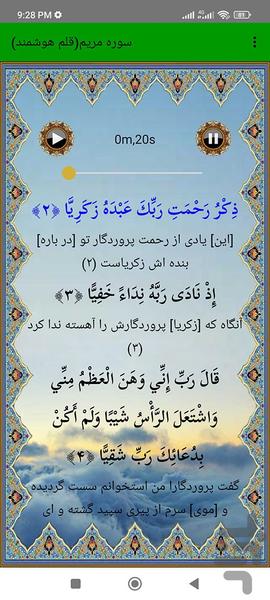 9:28 PM
سوره مریم(قلم هوشمند)
0m,20s
ذِكْرُ رَحْمَتِ رَبِّكَ عَبْدَهُ زَكَرِيَّا ﴿٢﴾
[این] یادی از رحمت پروردگار تو [در باره]
بنده اش زکریاست (۲)
إِذْ نَادَى رَبَّهُ نِدَاءً خَفِيًّا ﴿٣﴾
آنگاه که [زکریا] پروردگارش را آهسته ندا کرد
(۳)
قَالَ رَبِّ إِنِّي وَهَنَ الْعَظْمُ مِنِّي
وَاشْتَعَلَ الرَّأْسُ شَيْبًا وَلَمْ أَكُنْ
بِدُعَائِكَ رَبِّ شَقِيًّا ﴿۴﴾
گفت پروردگارا من استخوانم سست گردیده
و [موی] سرم از پیری سپید گشته و ای